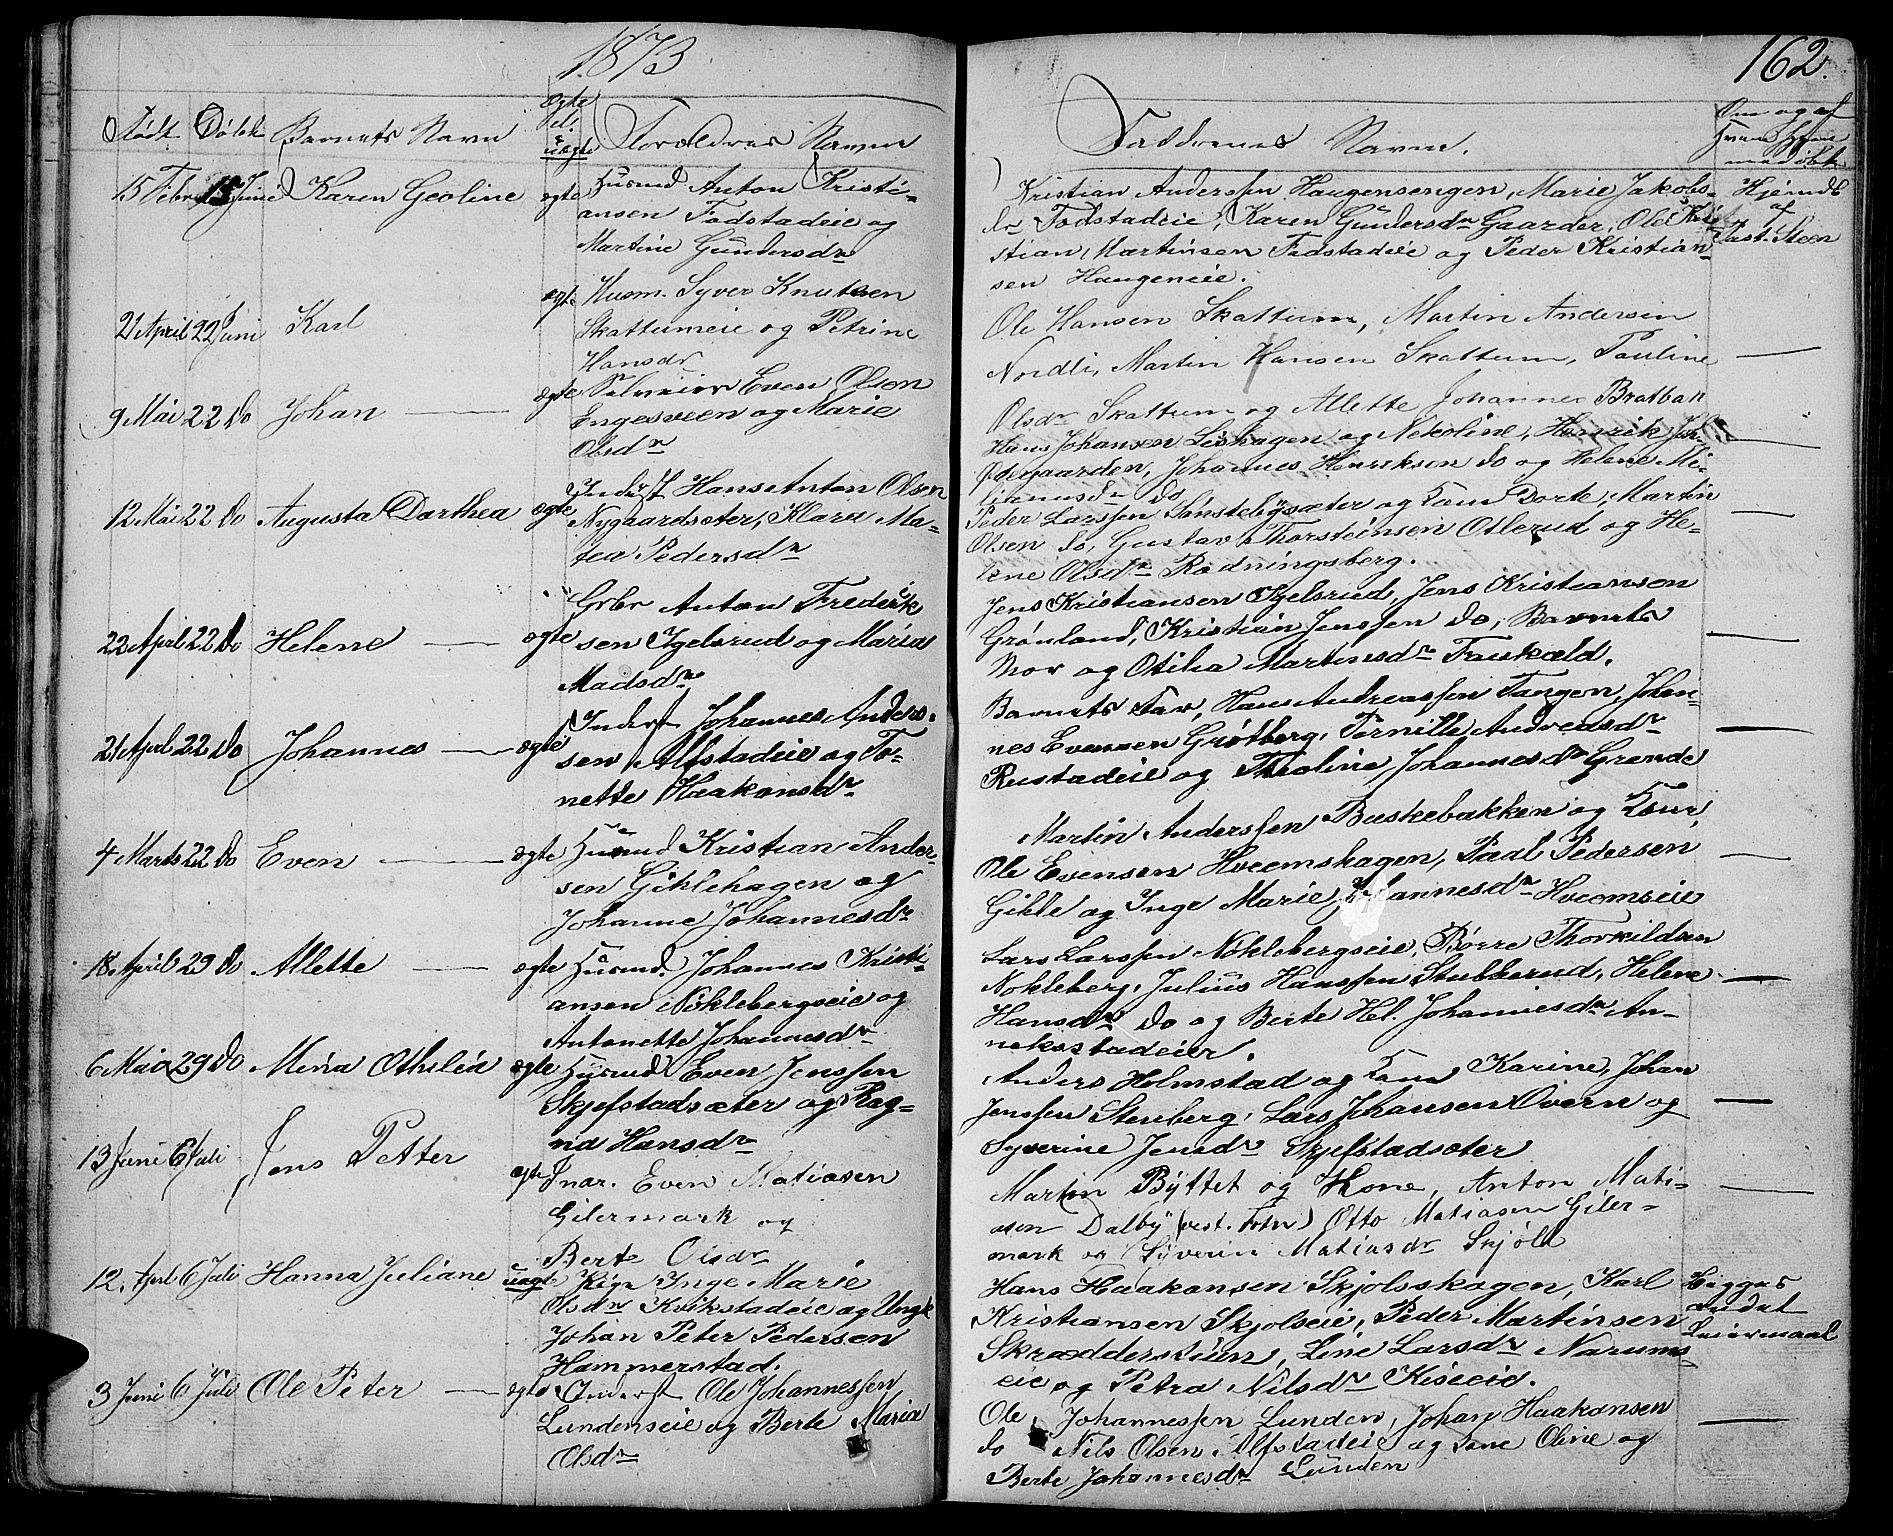 1873
162.
Født Døbt Barnets Navn ægte ell. uægte Forældrenes Navne
Faddernes Navne.
Om og af hvem hjemmedøbt
15 Febr 15 Juni Karen Geoline ægte Husmd Anton Kristi-
ansen Fodstadeie og
Martine Gundersdr
Kristian Anderssen Haugensengen, Marie Jakobs-
dr Fodstadeie, Karen Gundersdr Gaarder, Ole Kri-
stian Martinsen Fodstadeie og Peder Kristian-
sen Haugeneie.
Hjemdb
af
Past. Steen
21 April 22 Juni Karl ægte Husm. Syver Knutsen
Skattumeie og Petrine
Hansdr
Ole Hansen Skattum, Martin Andersen
Nordli, Martin Hansen Skattum, Pauline —
Olsdr Skattum og Allette Johannes Bratbak
9 Mai 22 do Johan — ægte Even Olsen
Engesveen og Marie
Olsdr
Hans Johansen Lishagen og Nekoline, Henrik Joh. —
Johannes Henriksen do og Helene Mi-
do
12 Mai 22 do Augusta Dorthea ægte Inderst Hans Anton Olsen
Nygaardsæter, Klara Ma-
tea Pedersdr
Peder Larssen Sonstebysæter og Kone Dorte, Martin
Olsen do, Gustav Thorsteinsen Osterud og He- —
lene Olsdr Rødningsberg.
22 April 22 do Helene — ægte Grbr Anton Fredrik
sen Igelsrud og Marias
Madsdr
Jens Kristiansen Igelsrud, Jens Kristiansen
Grønland, Kristian Jenssen do, Barnets —
Mor og Otilia Martinsdr Fauskæld.
21 April 22 do Johannes — ægte Inderst Johannes Anders-
sen Alfstadeie og To-
nette Haakonsdr
Barnets Far, Hans Andreassen Tangen, Johan-
nes Evensen Grøtberg, Pernille Andreasdr —
Rustadeie og Theoline Johannesdr Grande
4 Marts 22 do Even — ægte Husmd Kristian Ander-
sen Giklehagen og
Johanne Johannesdr
Martin Anderssen Buskebakken og Kone,
Ole Evensen Hveemshagen, Paal Pedersen —
Gihle og Inge Marie Johannesdr Hveemseie
18 April 29 do Allette — ægte Husmd. Johannes Kristi-
ansen Nøklebergseie og
Antonette Johannesdr
Lars Larssen Nøklebergseie, Børre Thorkildsen
Nøkleberg, Julius Hanssen Stubberud, Helene —
Hansdr do og Berte Hel. Johannesdr An-
neksstadeier.
6 Mai 29 do Mina Othilia ægte Husmd Even Jenssen
Skjefstadsæter og Rag-
na Hansdr
Anders Holmstad og Kone Karine, Johan
Jenssen Stenberg, Lars Johansen Overn og —
Syverine Jensdr Skjefstadsæter
13 Juni 6 Juli Jens Petter ægte Even Matiasen
Gilermark og
Berte Olsdr
Martin Byttet og Kone, Anton Mati- —
asen Dalby (vest. Toten) Otto Matiasen Giler-
mark og Syverin Matiasdr Skjøll
12. April 6 Juli Hanna Juliane uægte Pige Inge Marie
Olsdr Kvikstadeie og Ungk
Johan Peter Pedersen
Hammerstad.
Hans Haakonsen Skjølsshagen, Karl
Kristiansen Skjølseie, Peder Martinsen
Skrædderstuen, Line Larsdr Narums-
eie og Petra Nilsdr Kiseeie.
Begges
andet
Leiermaal
3 Juni 6 Juli Ole Peter — ægte Inderst Ole Johannessen
Lundenseie og Berte Maria
Olsdr
Ole Johannessen Lunden, Johan Haakonsen —
do Nils Olsen Alfstadeie og Kone Oline og
Berte Johannesdr Lunden